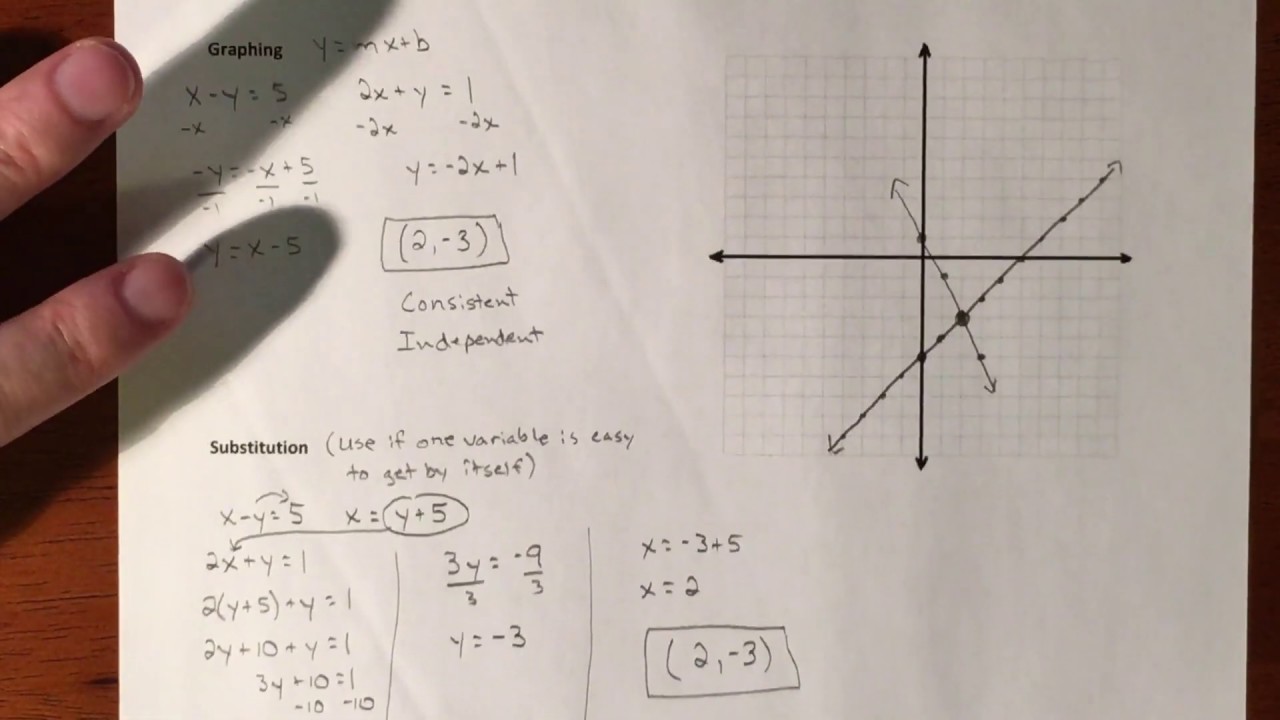 Graphing y = mx+b
x - y = 5 2x + y = 1
-x -x -2x -2x
-y = -x + 5 y = -2x+1
-1 -1 -1
y = x - 5 (2, -3)
Consistent
Independent
Substitution (use if one variable is easy
to get by itself)
x-y=5 x = y+5
2x+y=1
2(y+5)+y=1
2y+10+y=1
3y+10=1
-10 -10
3y = -9
3 3
y = -3
x = -3+5
x = 2
(2, -3)